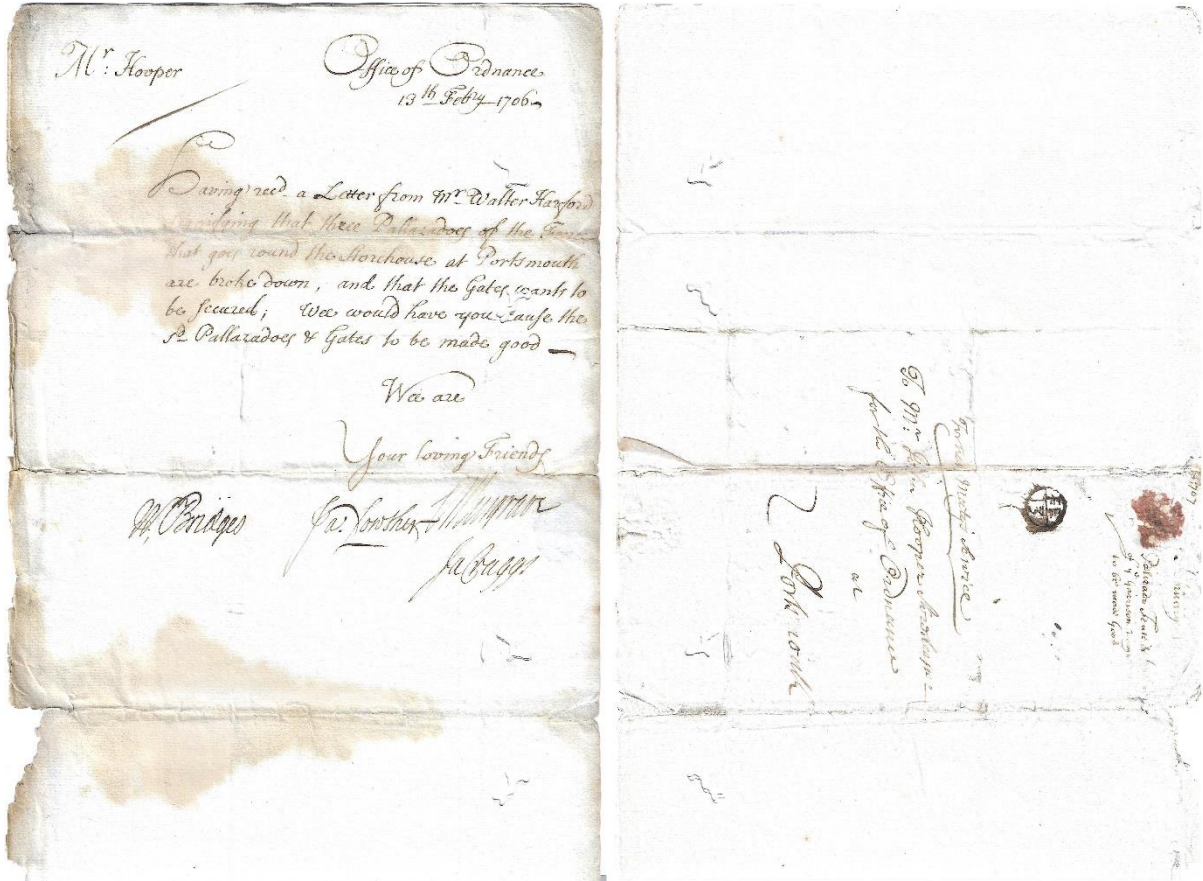 Mr. Hooper
Office of Ordnance
13th Febry 1706
Having recd a Letter from Mr Walter Harford
signifying that three Pallaradoes of the Fence
that goes round the Storehouse at Portsmouth
are broke down, and that the Gates wants to
be secured; Wee would have you Cause the
sd Pallaradoes & Gates to be made good
Wee are
Your loving Friends
W. Bridges Ja. Lowther
Ja Craggs
For her Maties Service
To Mr John Hooper Storekeeper
for the Office of Ordnance
at
Portsmouth
Palizado Fence
to be made Good